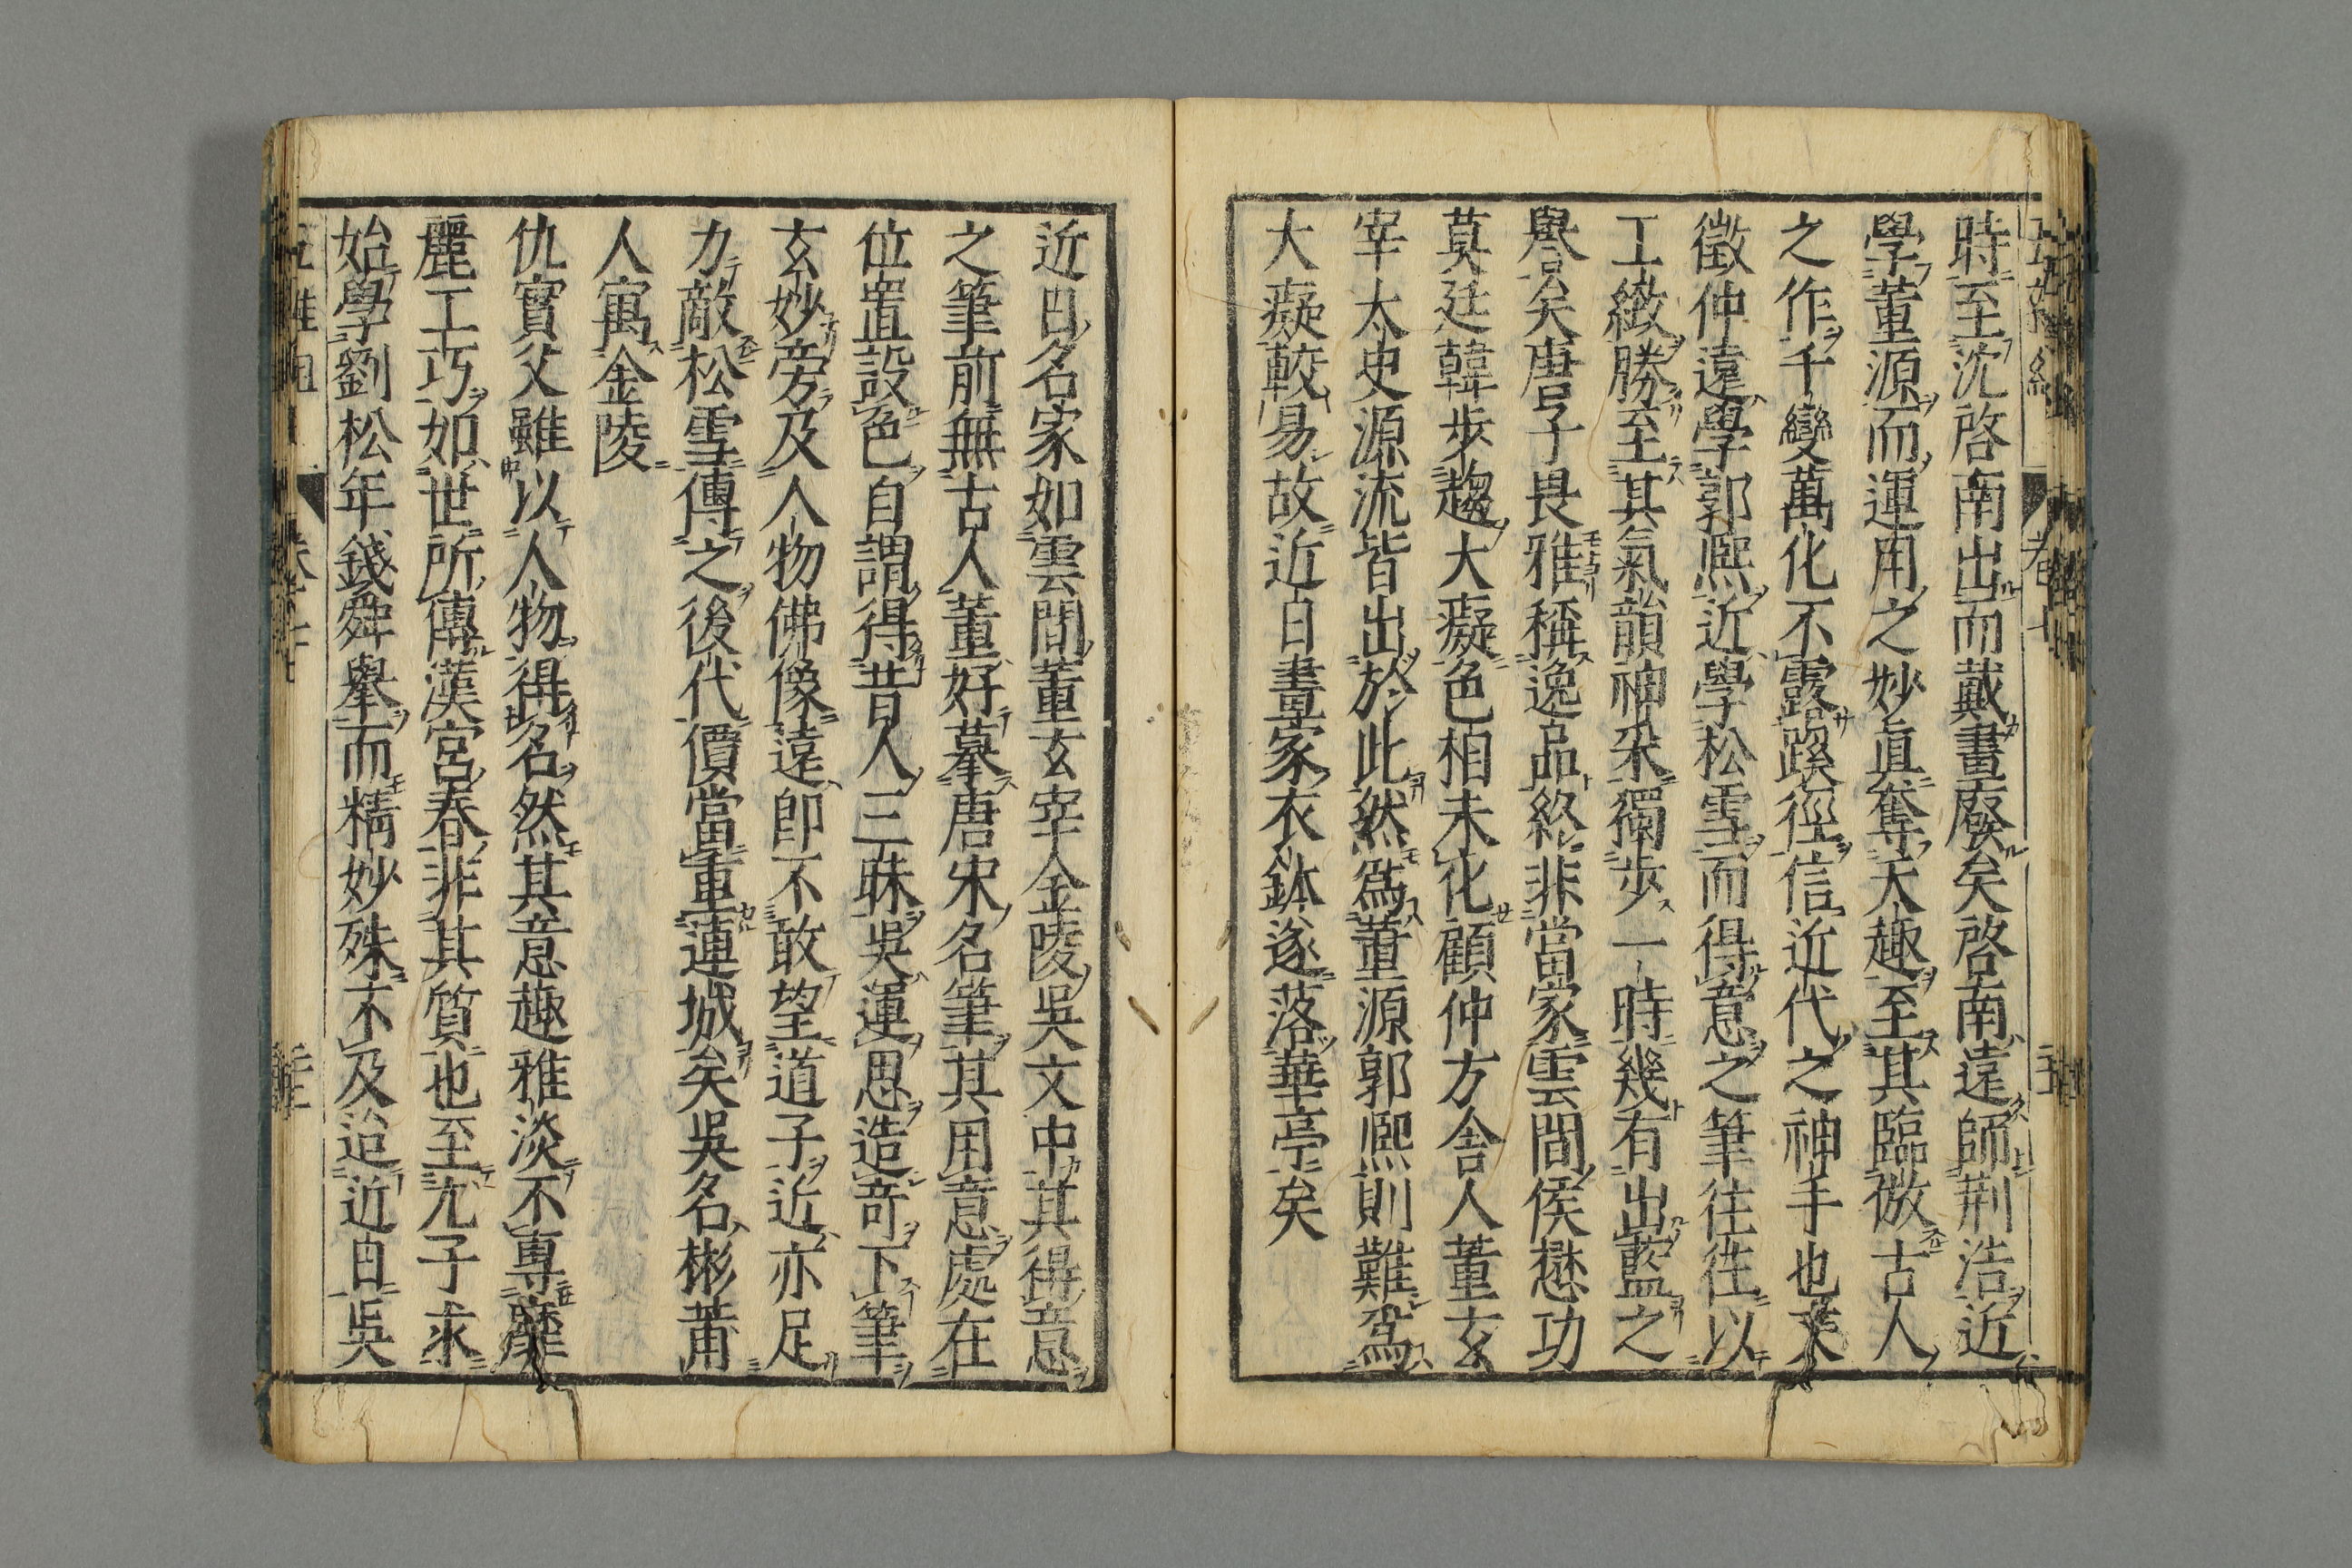 時至沈啓南出而戴畫廢矣啓南遠師荆浩近
學董源而運用之妙眞奪天趣至其臨倣古人
之作千變萬化不露蹊徑信近代之神手也文
徵仲遠學郭熙近學松雪而得意之筆往往以
工緻勝至其氣韻神采獨步一時幾有出藍之
譽矣唐子畏雅稱逸品終非當家雲間侯懋功
莫廷韓步趨大癡色相未化顧仲方舍人董玄
宰太史源流皆出於此然爲董源郭熙則難爲
大癡較易故近日畫家衣鉢遂落華亭矣
近日名家如雲間董玄宰金陵吳文中其得意
之筆前無古人董好摹唐宋名筆其用意處在
位置設色自謂得昔人三昧吳運思造奇下筆
玄妙旁及人物佛像遠卽不敢望道子近亦足
力敵松雪傳之後代價當重連城矣吳名彬莆
人寓金陵
仇實父雖以人物得名然其意趣雅淡不專靡
麗工巧如世所傳漢宮春非其質也至尤子求
始學劉松年錢舜擧而精妙殊不及迨近日吳